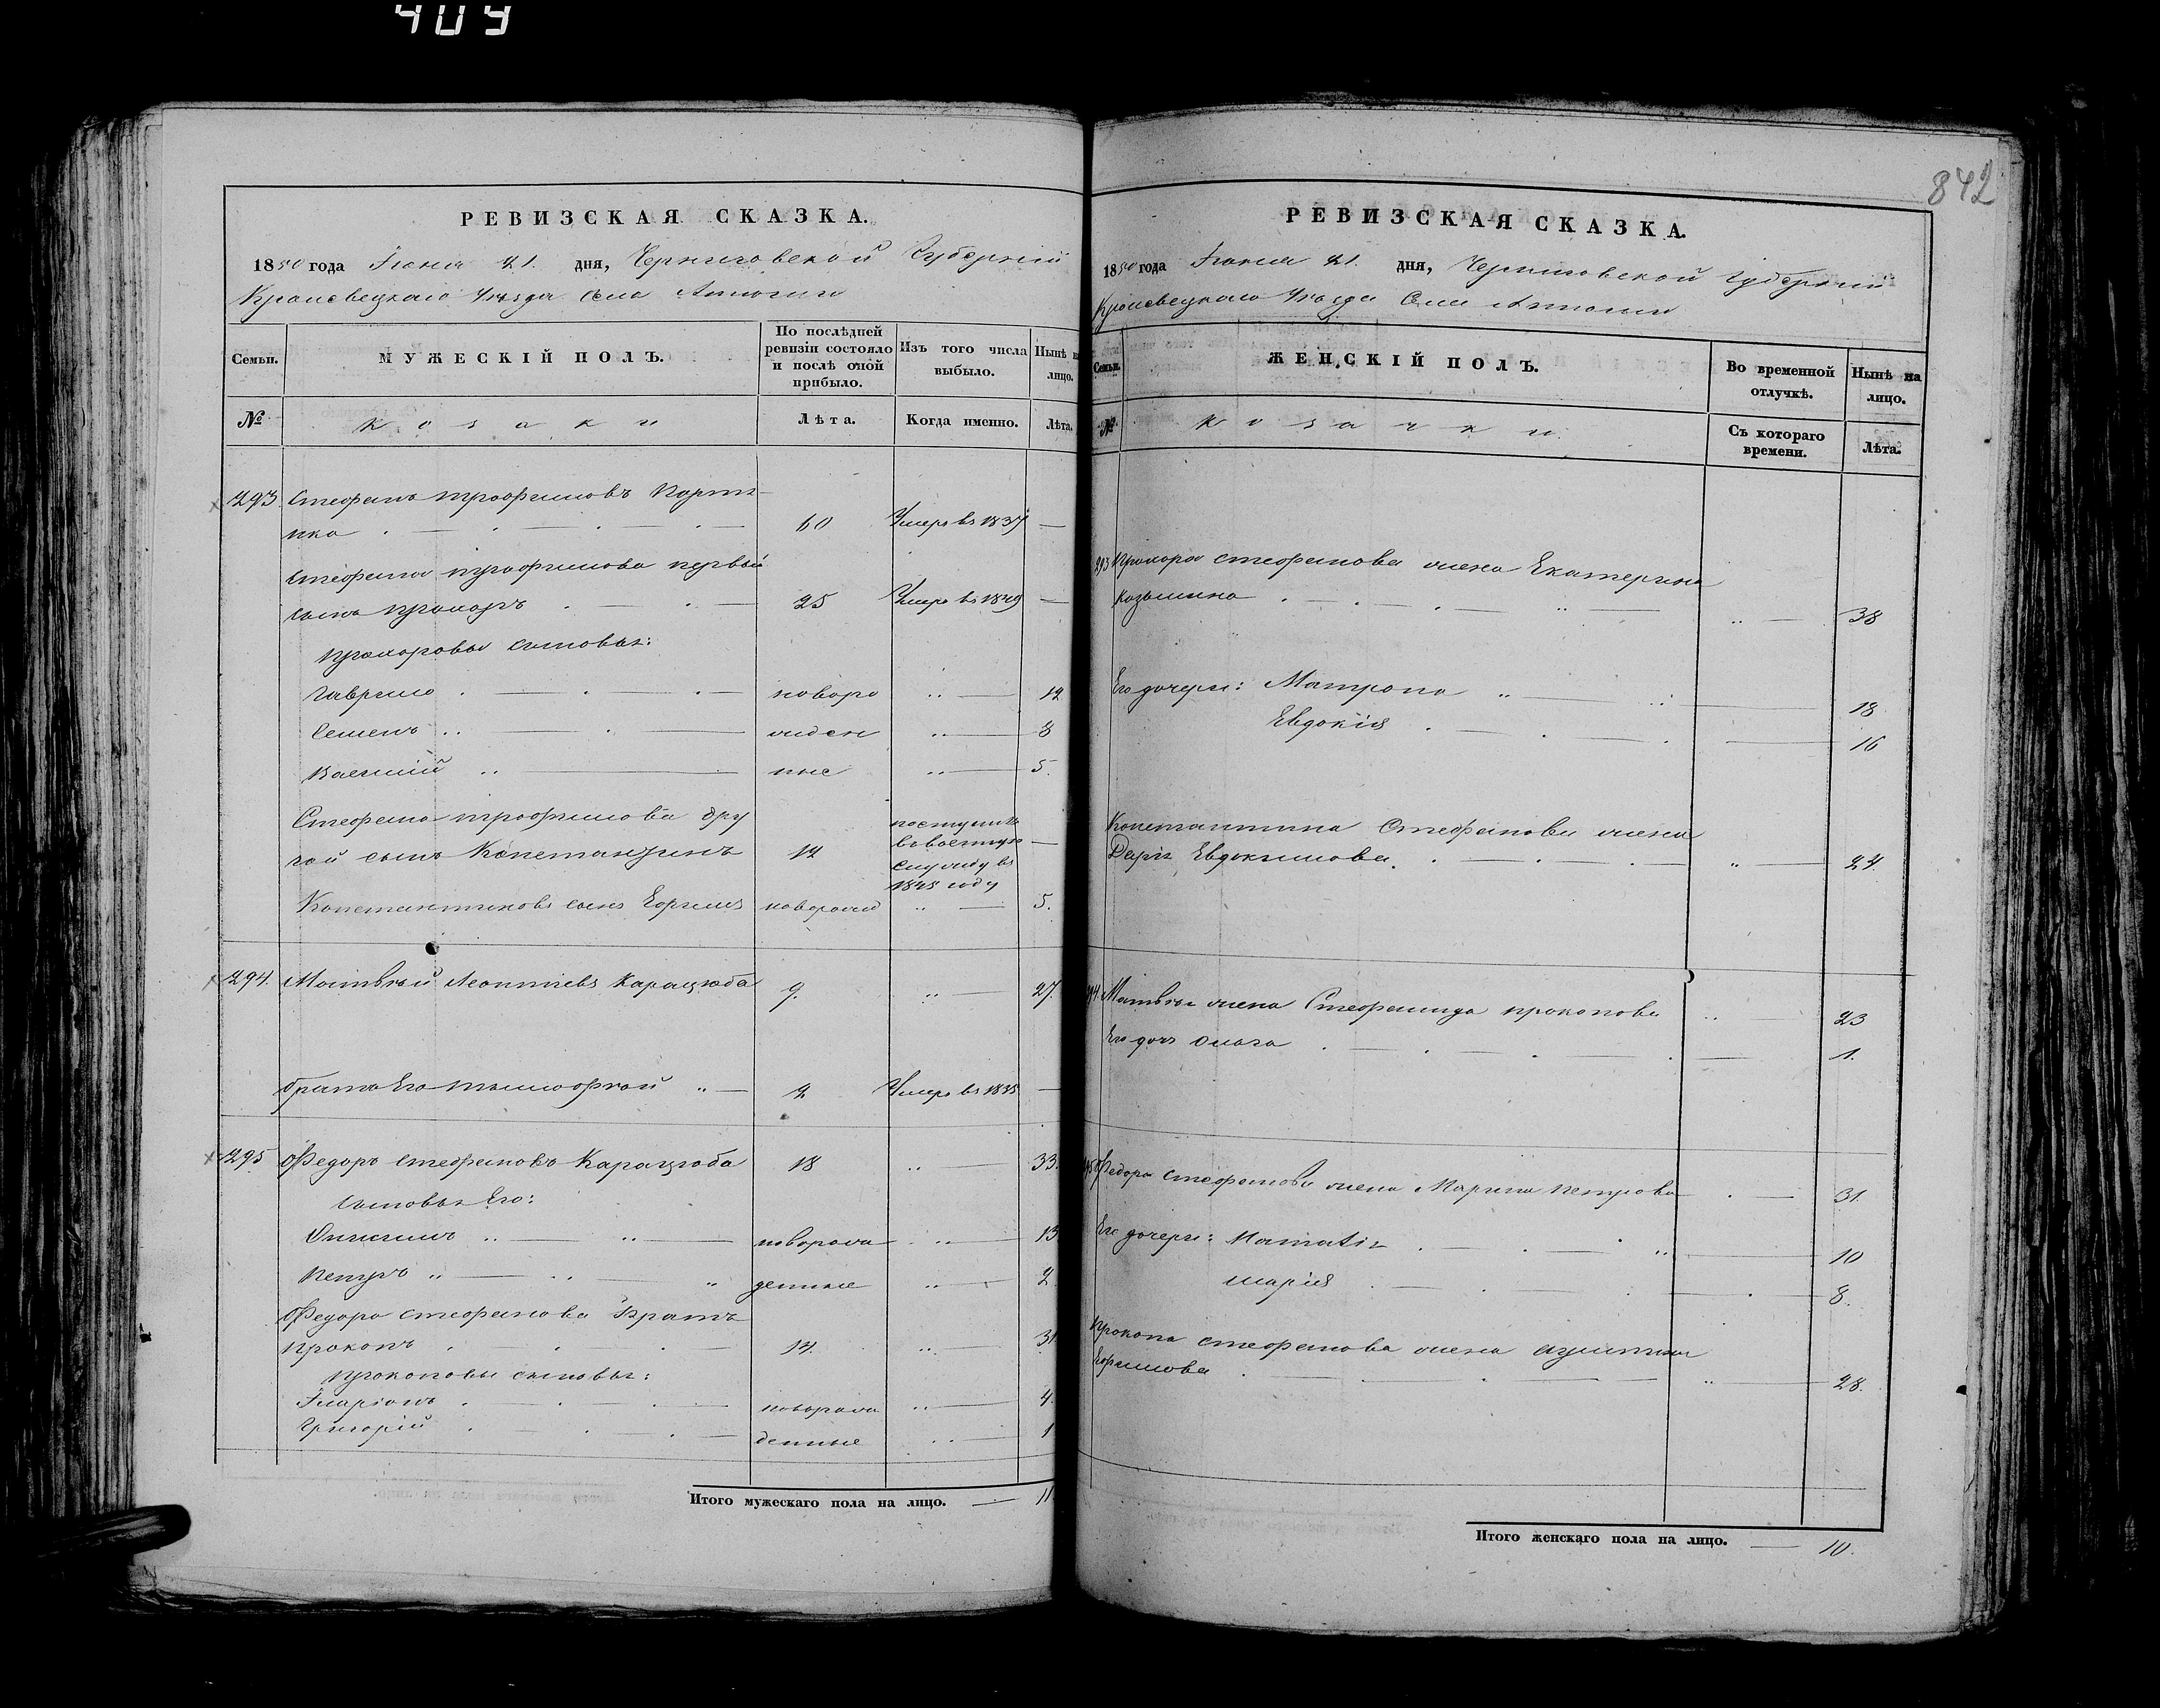 409
842
РЕВИЗСКАЯ СКАЗКА.
1850 года Іюня 21. дня, Черниговской Губерніи
Кролевецкаго Уѣзда Села
Семьи. МУЖЕСКІЙ ПОЛЪ. По послѣдней ревизіи состояло и послѣ оной прибыло. Изъ того числа выбыло. Нынѣ на лицо.
№ Козаки Лѣта. Когда именно. Лѣта.
293. Стефанъ Трофимовъ
60 Умеръ въ 1837 —
Стефана Трофимова первый
сынъ Прохоръ 25 Умеръ въ 1849 —
Прохоровы сыновья:
Гаврило новоро 12
Семенъ жден 8
Василий ные 5.
Стефана Трофимова дру
гой сынъ Константинъ 12 поступилъ въ военную службу въ 1845 году —
Константиновъ сынъ новорожд 5.
294. Матвѣй Леонтіевъ Карацюба 9. 27.
братъ Его Тымофѣй 2 Умеръ въ 1835 —
295 Федоръ Стефановъ Карацюба 18 33.
сыновья Его:
Онисимъ новорож 13
Петръ денные 2
Федора Стефанова Братъ
Прокопъ 14. 31
Прокоповы сыновья:
Іларіонъ новорож 4
Григорій денные 1
Итого мужескаго пола на лицо. — 11.
РЕВИЗСКАЯ СКАЗКА.
1850 года Іюня 21. дня, Черниговской Губерніи
Кролевецкаго Уѣзда Села
Семьи. ЖЕНСКІЙ ПОЛЪ. Во временной отлучкѣ. Нынѣ на лицо.
№ Козачки Съ котораго времени. Лѣта.
293 Прохора Стефанова жена Екатерина
Козьмина 38
Его дочери: Матрона 18
Евдокія 16
Константина Стефанова жена
Дарья Евдокимова 24.
294 Матвѣя жена Стефанида Прокопова 23
Его дочь Ольга 1.
295 Федора Стефанова жена Марина Петрова 31.
Его дочери: Наталія 10
Марія 8.
Прокопа Стефанова жена
28.
Итого женскаго пола на лицо. — 10.